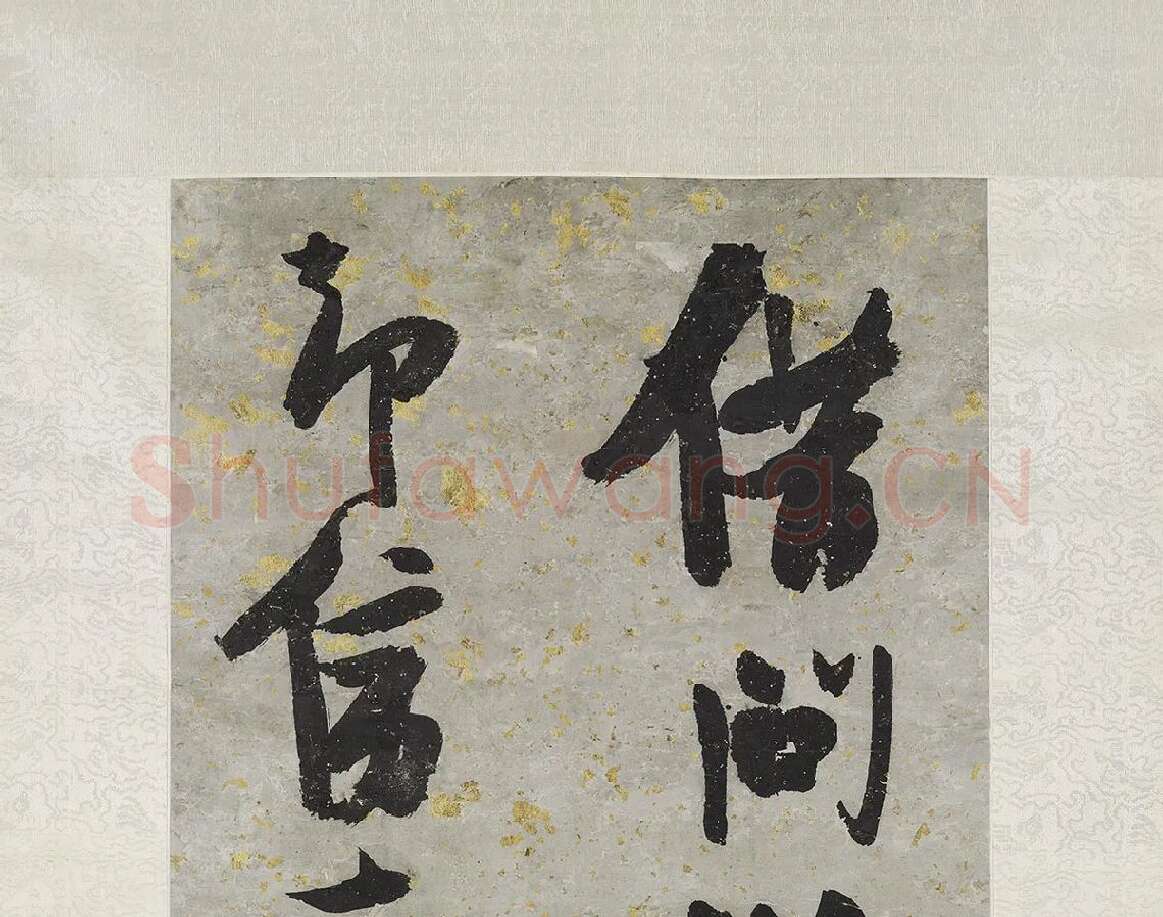 借問
却信
Shufawang.CN